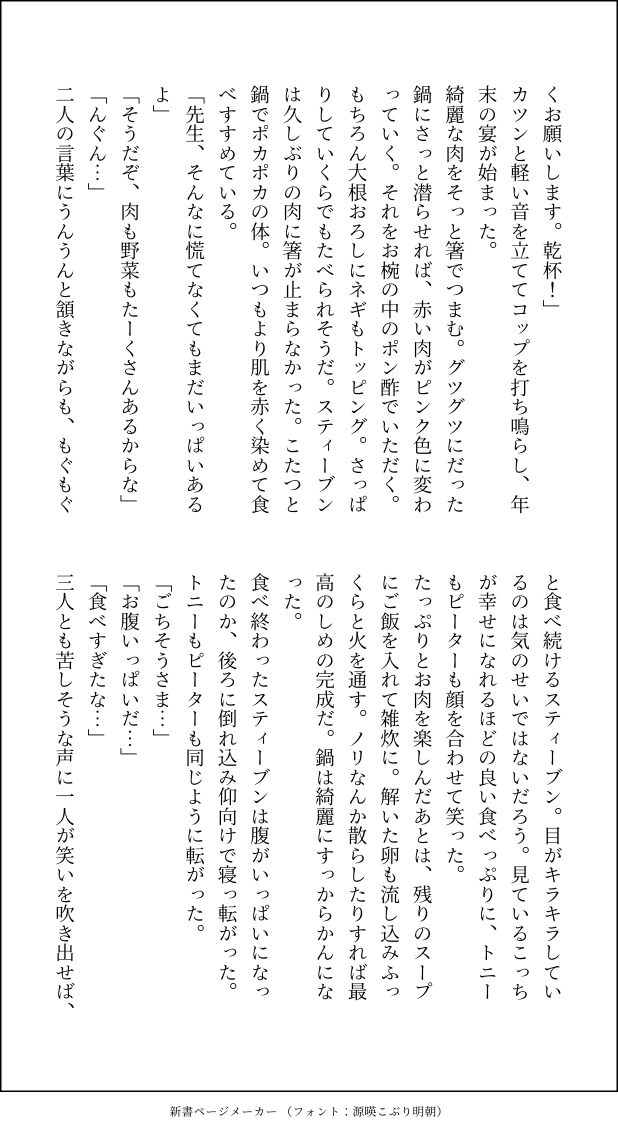 くお願いします。乾杯！」
カツンと軽い音を立ててコップを打ち鳴らし、年
末の宴が始まった。
綺麗な肉をそっと箸でつまむ。グツグツにだった
鍋にさっと潜らせれば、赤い肉がピンク色に変わ
っていく。それをお椀の中のポン酢でいただく。
もちろん大根おろしにネギもトッピング。さっぱ
りしていくらでもたべられそうだ。スティーブン
は久しぶりの肉に箸が止まらなかった。こたつと
鍋でポカポカの体。いつもより肌を赤く染めて食
べすすめている。
「先生、そんなに慌てなくてもまだいっぱいある
よ」
「そうだぞ、肉も野菜もたーくさんあるからな」
「んぐん…」
二人の言葉にうんうんと頷きながらも、もぐもぐ
と食べ続けるスティーブン。目がキラキラしてい
るのは気のせいではないだろう。見ているこっち
が幸せになれるほどの良い食べっぷりに、トニー
もピーターも顔を合わせて笑った。
たっぷりとお肉を楽しんだあとは、残りのスープ
にご飯を入れて雑炊に。解いた卵も流し込みふっ
くらと火を通す。ノリなんか散らしたりすれば最
高のしめの完成だ。鍋は綺麗にすっからかんにな
った。
食べ終わったスティーブンは腹がいっぱいになっ
たのか、後ろに倒れ込み仰向けで寝っ転がった。
トニーもピーターも同じように転がった。
「ごちそうさま…」
「お腹いっぱいだ…」
「食べすぎたな…」
三人とも苦しそうな声に一人が笑いを吹き出せば、
新書ページメーカー（フォント：源暎こぶり明朝）